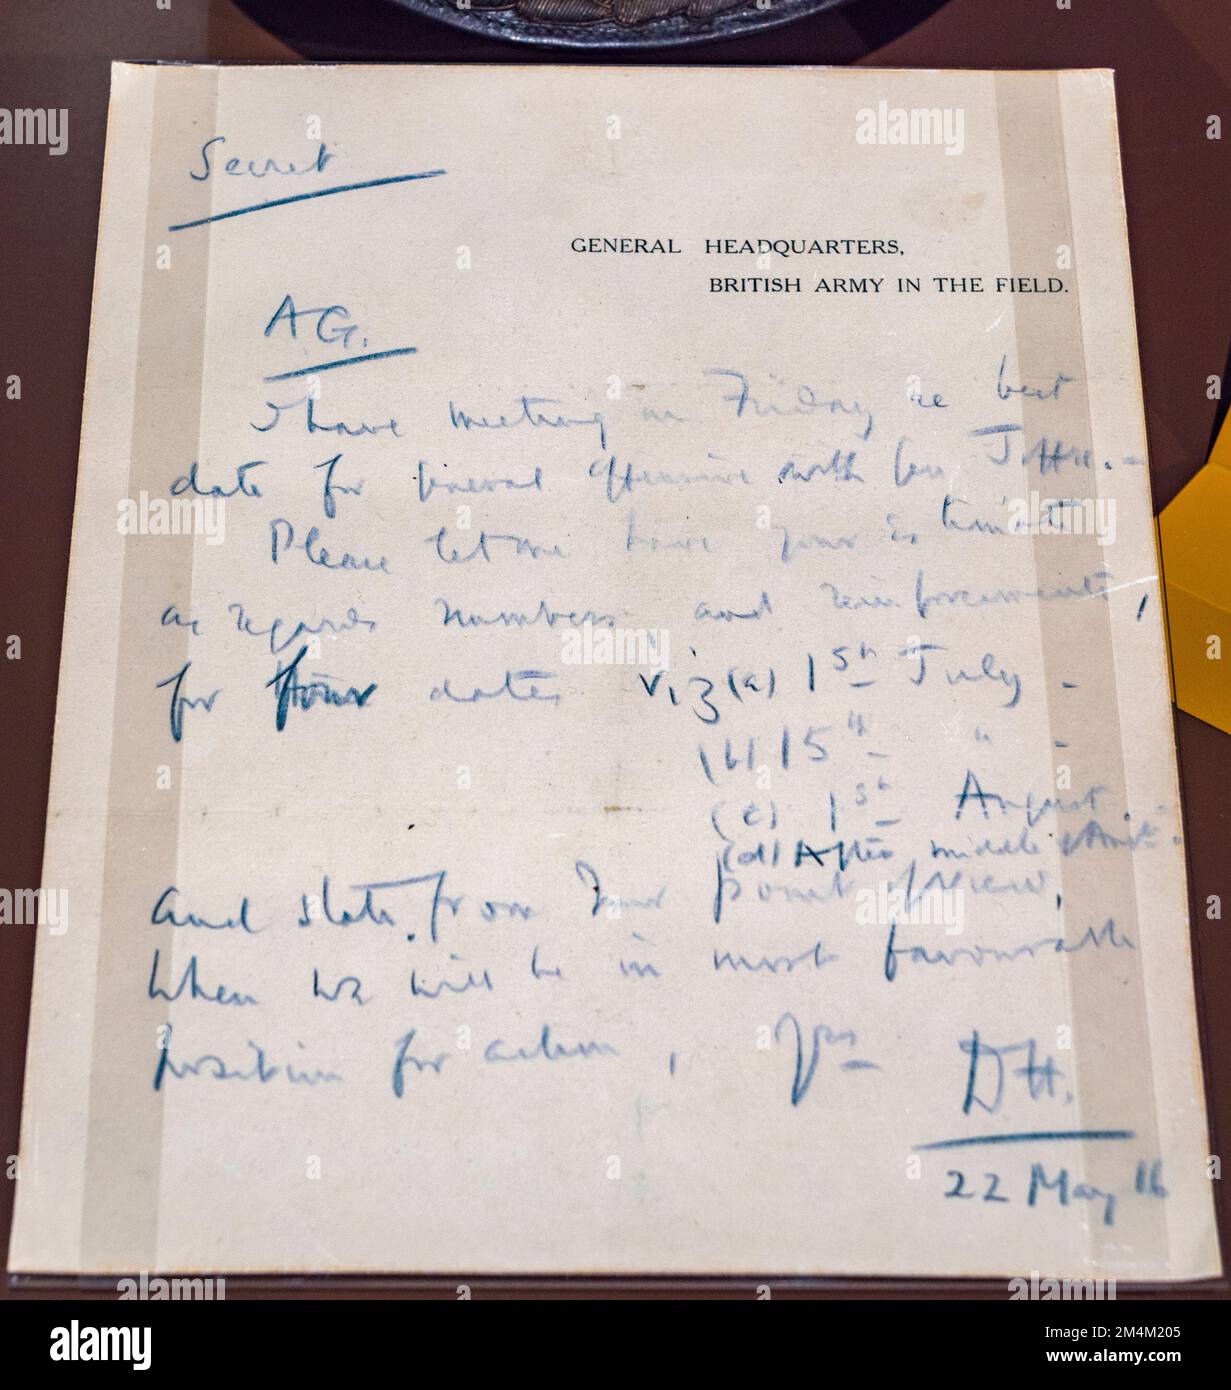 Secret
GENERAL HEADQUARTERS,
BRITISH ARMY IN THE FIELD.
AG.
I have meeting on Friday re best
date for general offensive with Gen Joffre. –
Please let me have your Estimate
as regards numbers, and reinforcements,
for four dates viz (a) 1st July –
(b) 15th " –
(c) 1st August –
(d) After middle of Augt –
and state from your point of view,
when we will be in most favourable
position for action,   Yrs   DH.
22 May 16
alamy
alamy
alamy
alamy
alamy
alamy
Image ID: 2M4M205
www.alamy.com